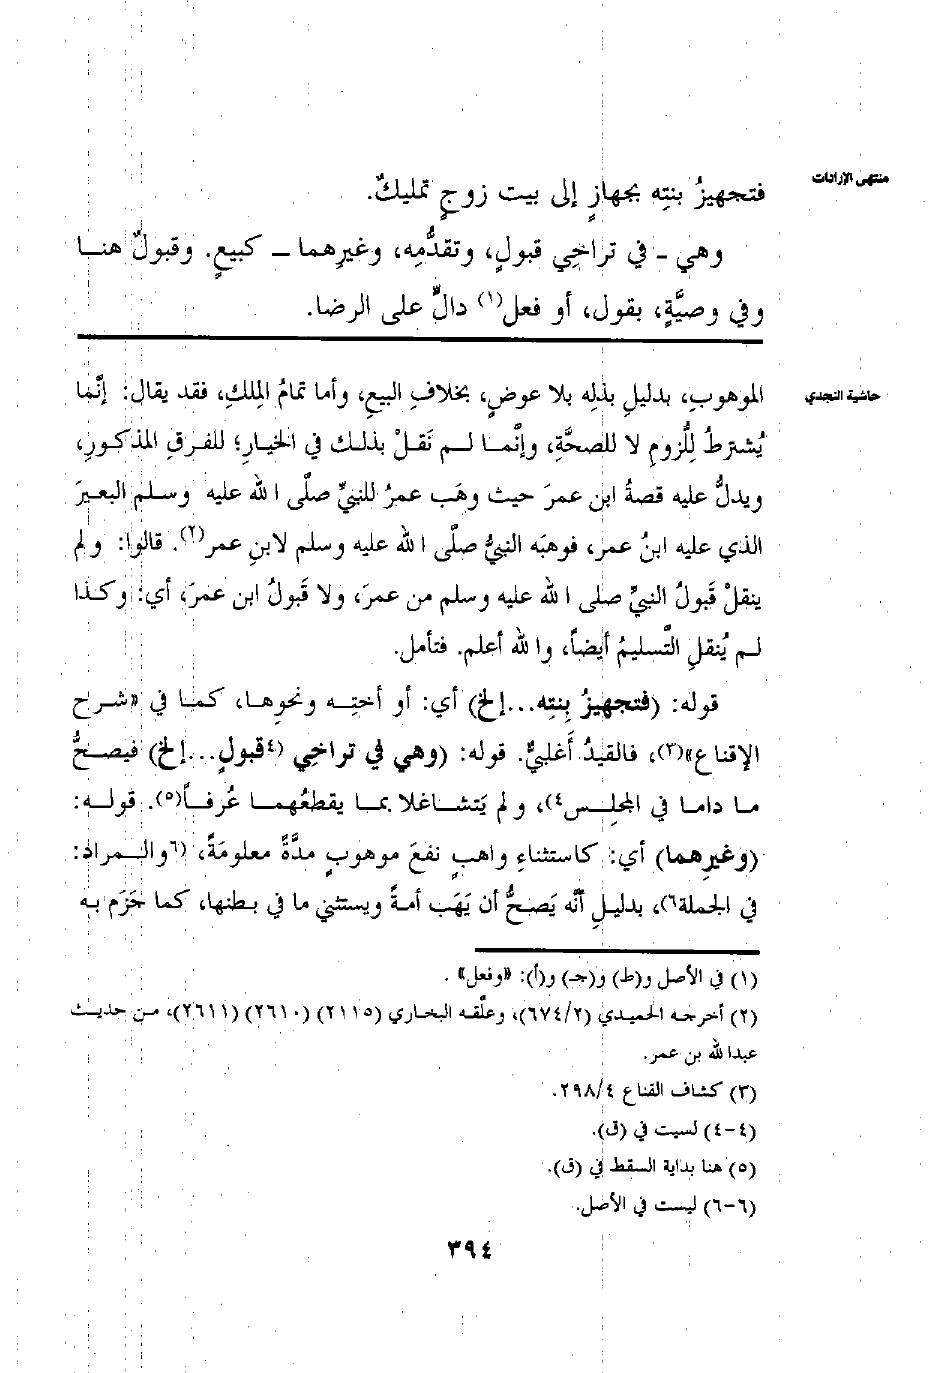 منتهى الإرادات
فتجهيزُ بنتِه بجهازٍ إلى بيت زوجٍ تمليكٌ.
وهي ـ في تراخِي قبولٍ، وتقدُّمِه، وغيرِهما ـ كبيعٍ. وقبولٌ هنا
وفي وصيَّةٍ، بقول، أو فعل(١) دالٍّ على الرضا.
حاشية النجدي
الموهوبِ، بدليلِ بذلِه بلا عوضٍ، بخلافِ البيعِ، وأما تمامُ المِلكِ، فقد يقال: إنَّما
يُشترطُ للُّزومِ لا للصحَّةِ، وإنَّما لم نَقلْ بذلك في الخيارِ؛ للفرقِ المذكورِ،
ويدلُّ عليه قصةُ ابن عمرَ حيث وهَب عمرُ للنبيِّ صلَّى الله عليه وسلم البعيرَ
الذي عليه ابنُ عمرَ، فوهبَه النبيُّ صلَّى الله عليه وسلم لابنِ عمر(٢). قالوا: ولم
ينقلْ قَبولُ النبيِّ صلى الله عليه وسلم من عمرَ، ولا قَبولُ ابن عمرَ، أي: وكذا
لم يُنقلِ التَّسليمُ أيضاً، والله أعلم. فتأمل.
قوله: (فتجهيزُ بِنتِه...إلخ) أي: أو أختِه ونحوِها، كما في «شرح
الإقناع»(٣)، فالقيدُ أَغلبيٌّ. قوله: (وهي في تراخِي (٤قبولٍ...إلخ) فيصحُّ
ما داما في المجلِس٤)، ولم يَتشاغلا بما يقطعُهما عُرفاً(٥). قوله:
(وغيرِهما) أي: كاستثناءِ واهبٍ نفعَ موهوبٍ مدَّةً معلومةً، (٦والمرادُ:
في الجملة٦)، بدليلِ أنَّه يَصحُّ أن يَهَب أمةً ويستثني ما في بطنها، كما جَزَم به
(١) في الأصل و(ط) و(جـ) و(أ): «وفعل» .
(٢) أخرجه الحميدي (٦٧٤/٢)، وعلَّقه البخاري (٢١١٥) (٢٦١٠) (٢٦١١)، من حديث
عبدالله بن عمر.
(٣) كشاف القناع ٢٩٨/٤.
(٤-٤) لسيت في (ق).
(٥) هنا بداية السقط في (ق).
(٦-٦) ليست في الأصل.
٣٩٤